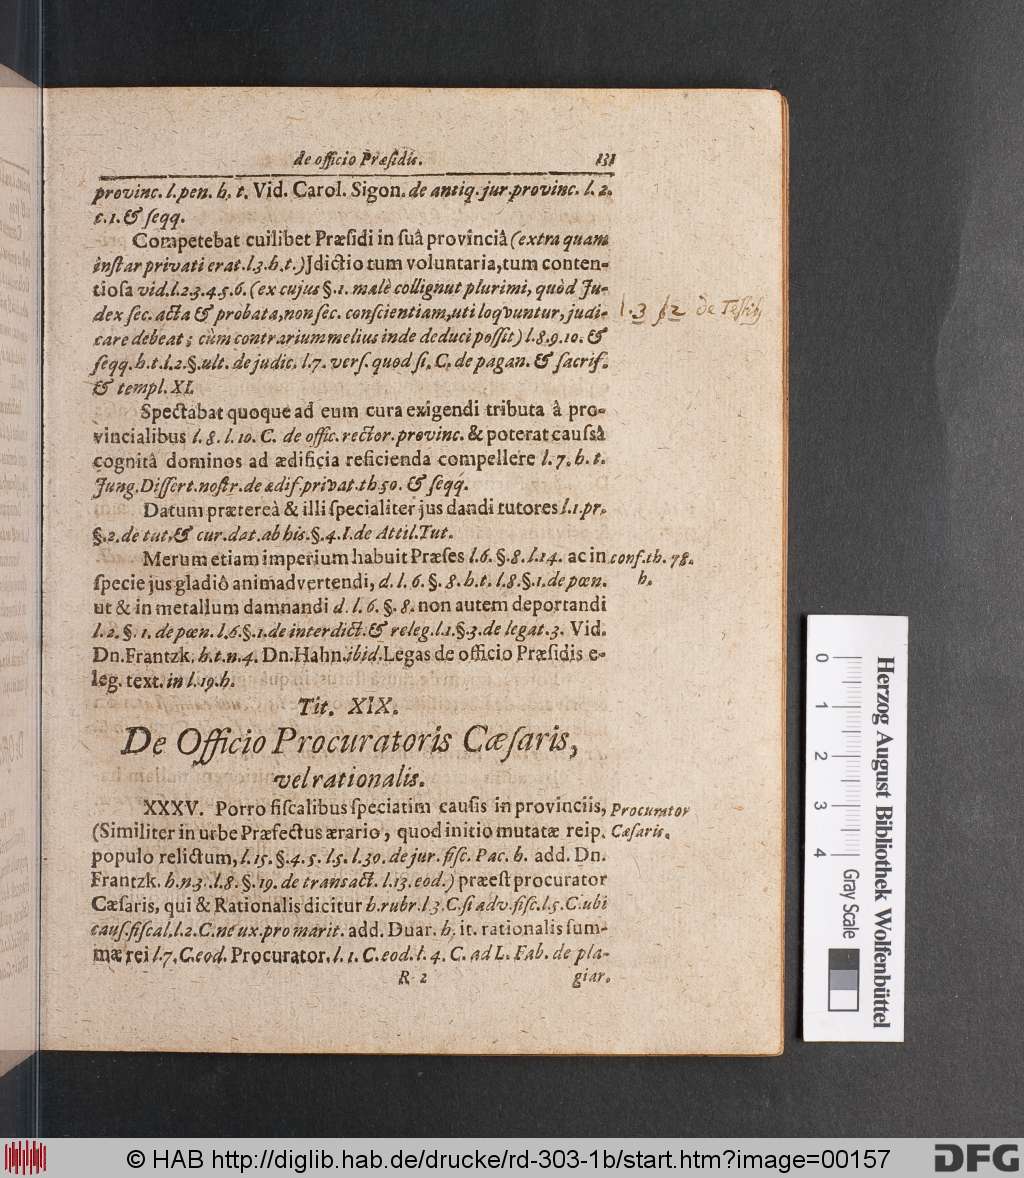 de officio Præſidis. 131
provinc. l. pen. h. t. Vid. Carol. Sigon. de antiq. jur. provinc. l. 2.
c. 1. & ſeqq.
Competebat cuilibet Præſidi in ſuâ provinciâ (extra quam
inſtar privati erat. l. 3. h. t.) Jdictio tum voluntaria, tum conten-
tioſa vid. l. 2. 3. 4. 5. 6. (ex cujus §. 1. malè collignut plurimi, quòd Ju-
dex ſec. acta & probata, non ſec. conſcientiam, uti loqvuntur, judi-
care debeat; cùm contrarium melius inde deduci poſſit) l. 8. 9. 10. &
ſeqq. h. t. l. 2. §. ult. de judic. l. 7. verſ. quod ſi. C. de pagan. & ſacrif.
& templ. XI.
l. 3 § 2 de Teſtib
Spectabat quoque ad eum cura exigendi tributa â pro-
vincialibus l. 8. l. 10. C. de offic. rector. provinc. & poterat cauſsâ
cognitâ dominos ad ædificia reficienda compellere l. 7. h. t.
Jung. Diſſert. noſtr. de ædif. privat. th. 50. & ſeqq.
Datum prætereà & illi ſpecialiter jus dandi tutores l. 1. pr.
§. 2. de tut. & cur. dat. ab his. §. 4. I. de Attil. Tut.
Merum etiam imperium habuit Præſes l. 6. §. 8. l. 14. ac in
ſpecie jus gladiô animadvertendi, d. l. 6. §. 8. h. t. l. 8. §. 1. de pœn.
ut & in metallum damnandi d. l. 6. §. 8. non autem deportandi
l. 2. §. 1. de pœn. l. 6. §. 1. de interdict. & releg. l. 1. §. 3. de legat. 3. Vid.
Dn. Frantzk. h. t. n. 4. Dn. Hahn. ibid. Legas de officio Præſidis e-
leg. text. in l. 19. h.
conf. th. 78.
h.
Tit. XIX.
De Officio Procuratoris Cæſaris,
vel rationalis.
XXXV. Porro fiſcalibus ſpeciatim cauſis in provinciis,
(Similiter in urbe Præfectus ærario, quod initio mutatæ reip.
populo relictum, l. 15. §. 4. 5. l. 5. l. 30. de jur. fiſc. Pac. h. add. Dn.
Frantzk. h. n. 3. l. 8. §. 19. de transact. l. 13. eod.) præeſt procurator
Cæſaris, qui & Rationalis dicitur h. rubr. l. 3. C. ſi adv. fiſc. l. 5. C. ubi
cauſ. fiſcal. l. 2. C. ne ux. pro marit. add. Duar. h. it. rationalis ſum-
mæ rei l. 7. C. eod. Procurator, l. 1. C. eod. l. 4. C. ad L. Fab. de pla-
R 2 giar.
Procurator
Cæſaris.
0 1 2 3 4
Herzog August Bibliothek Wolfenbüttel
Gray Scale
© HAB http://diglib.hab.de/drucke/rd-303-1b/start.htm?image=00157
DFG